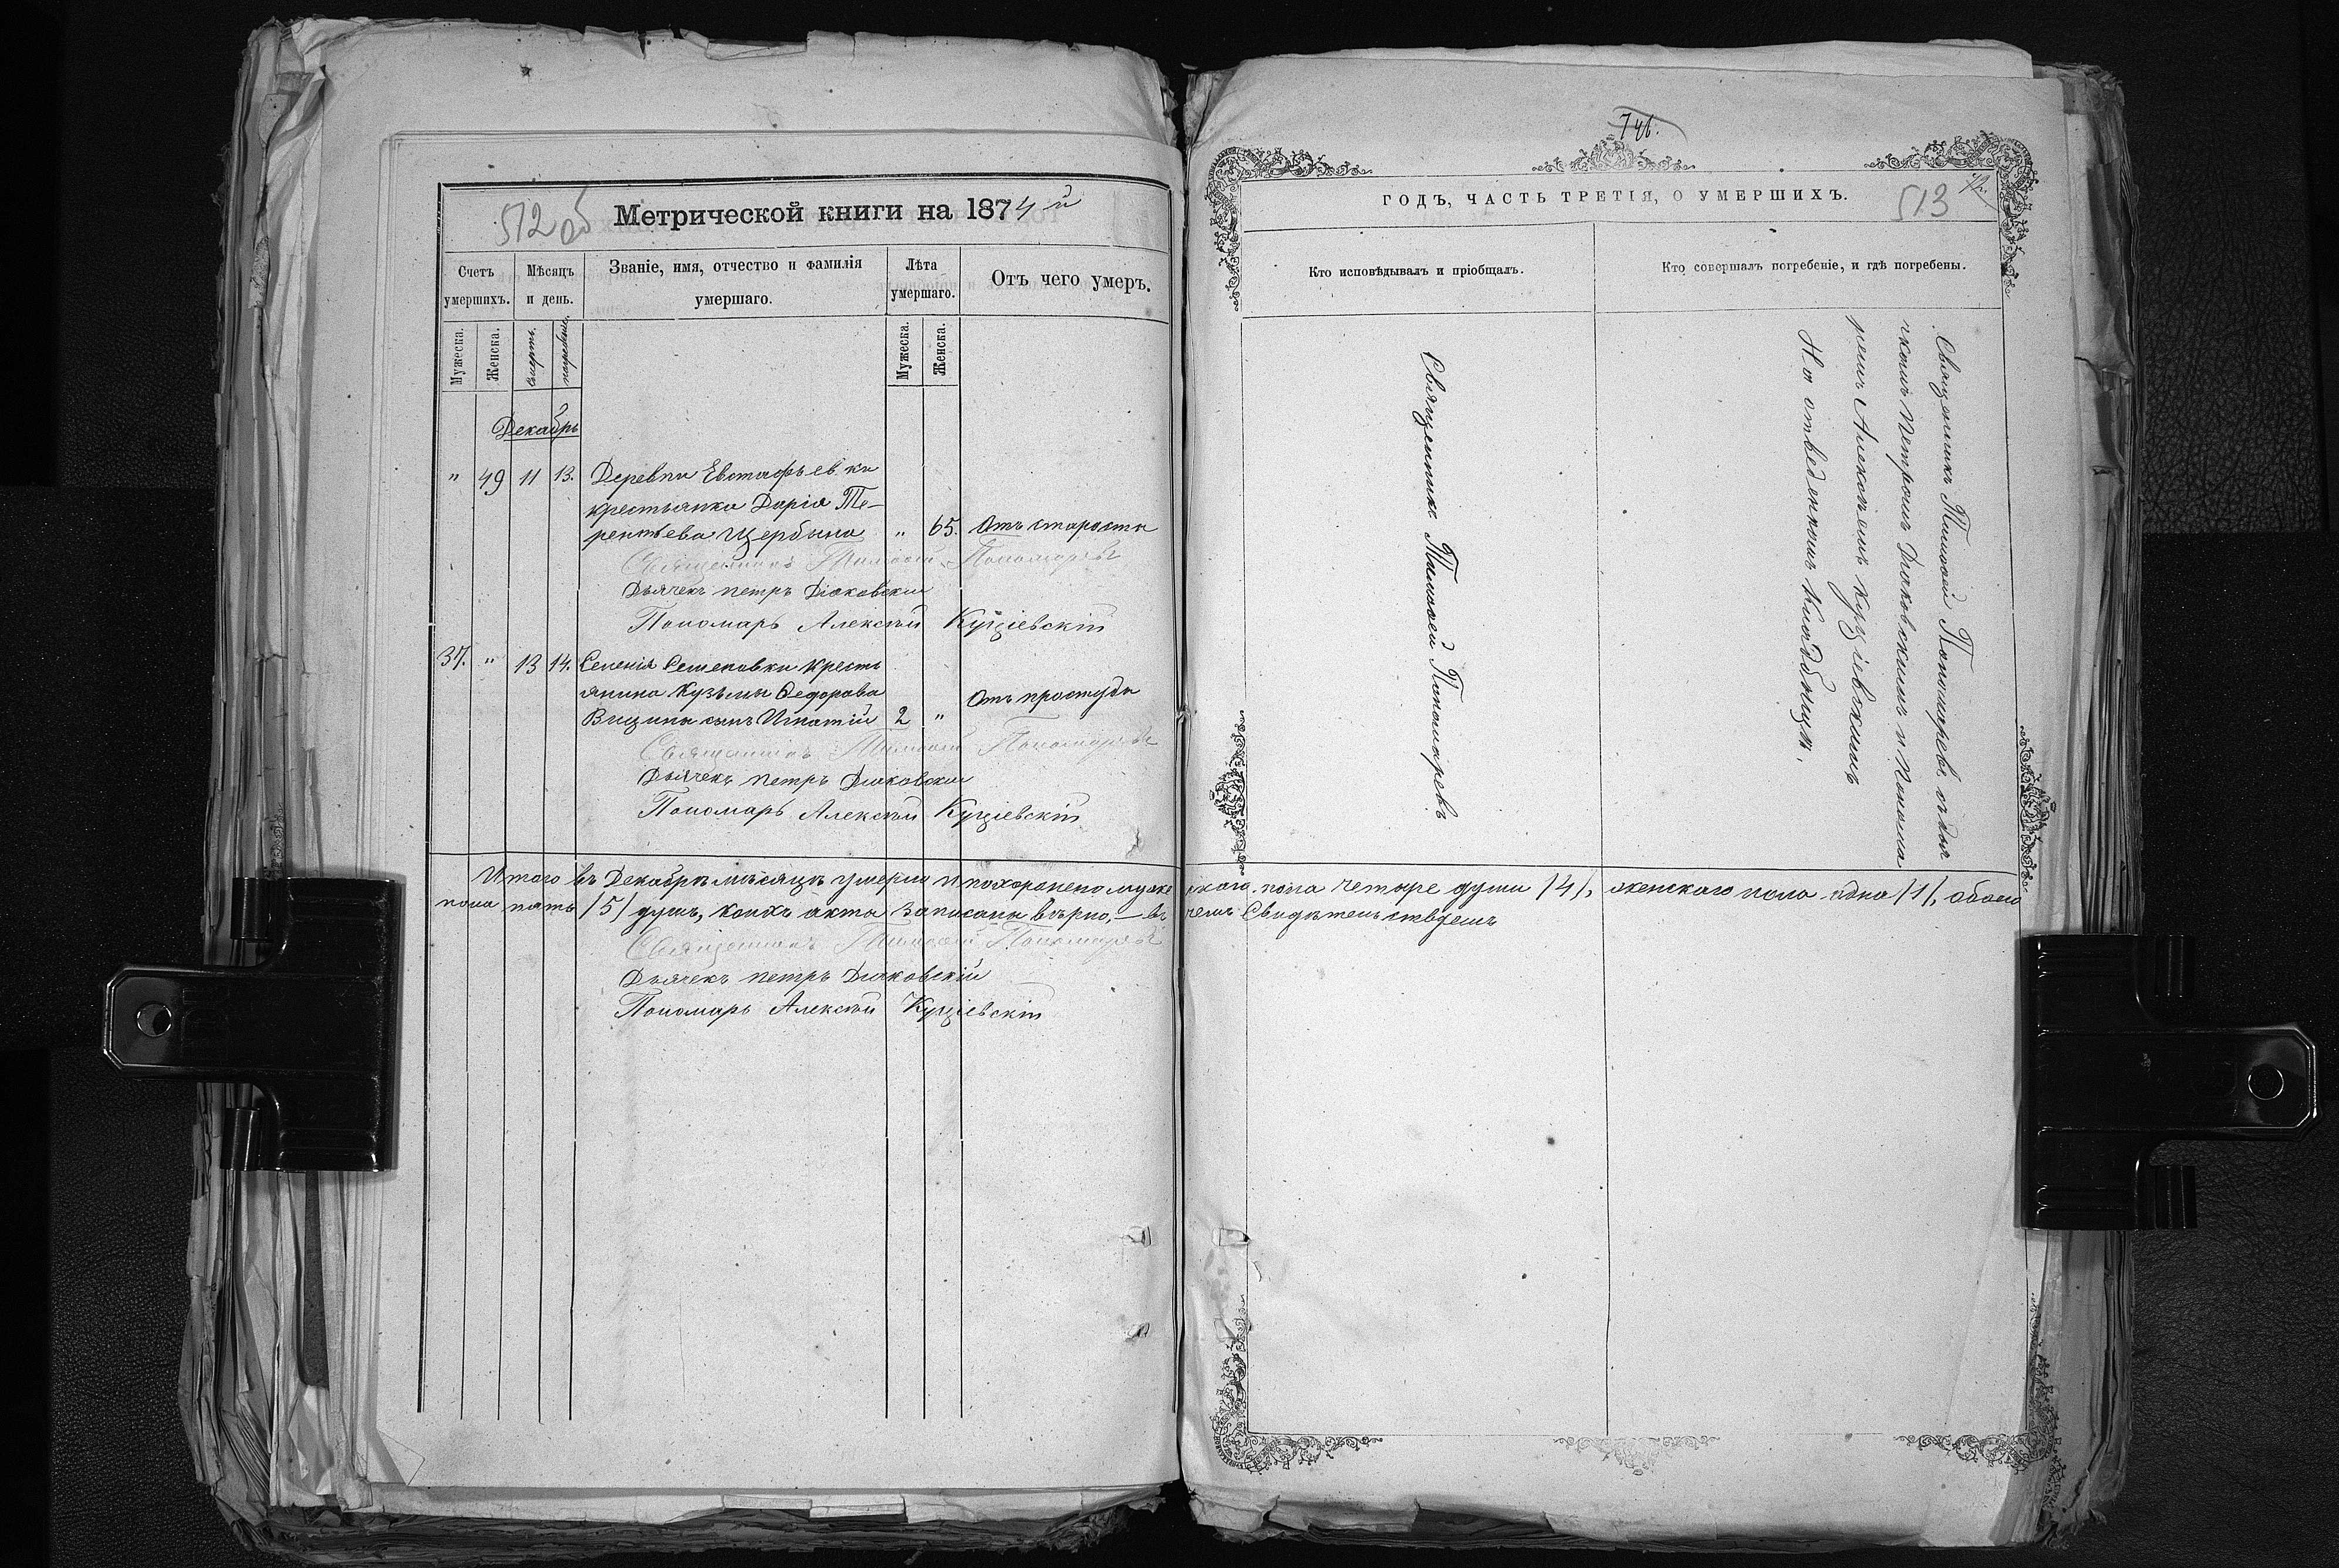 512 об
Метрической книги на 1874 й
Счетъ умершихъ.
Мѣсяцъ и день.
Званіе, имя, отчество и фамилія умершаго.
Лѣта умершаго.
Отъ чего умеръ.
Мужеска.
Женска.
Смерть.
погребенія.
Мужеска.
Женска.
Декабрь
" 49 11 13. Деревни Евстафьевки
крестьянка Дарія Те-
рентьева Щербина " 65. Отъ старости
Священникъ Тимофей Пономаревъ
Дьячекъ Петръ Діаковскій
Пономарь Алексѣй Кущіевскій
37. " 13 14. Селенія Семеновки кресть
янина Кузьмы Ѳедорова
Вищина сынъ Игнатій 2 " Отъ простуды
Священникъ Тимофей Пономаревъ
Дьячекъ Петръ Діаковскій
Пономарь Алексѣй Кущіевскій
Итого въ Декабрѣ мѣсяцѣ умерло и похоронено мужескаго пола четыре души /4/, женскаго пола одна /1/, обоего
пола пять /5/ душъ, коихъ акты записаны вѣрно, – въ чемъ Свидѣтельствуемъ
Священникъ Тимофей Пономаревъ
Дьячекъ Петръ Діаковскій
Пономарь Алексѣй Кущіевскій
746.
ГОДЪ, ЧАСТЬ ТРЕТІЯ, О УМЕРШИХЪ.
513
Кто исповѣдывалъ и пріобщалъ.
Кто совершалъ погребеніе, и гдѣ погребены.
Священникъ Тимофей Пономаревъ
Священникъ Тимофей Пономаревъ съ дья
чкомъ Петромъ Діаковскимъ и Понома
ремъ Алексѣемъ Кущіевскимъ
На отведенномъ кладбищѣ.